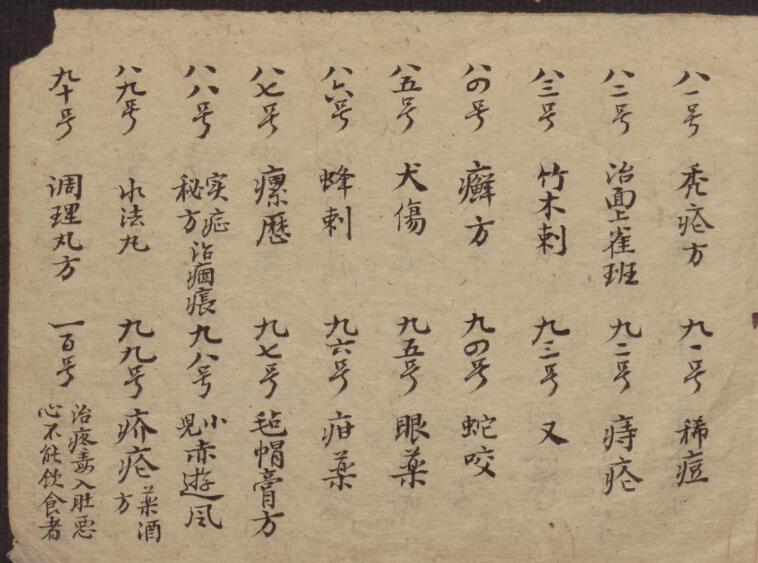 八一号 秃疮方 九一号 稀痘
八二号 治面上雀班 九二号 痔疮
八三号 竹木刺 九三号 又
八四号 癣方 九四号 蛇咬
八五号 犬傷 九五号 眼薬
八六号 蜂刺 九六号 疳薬
八七号 瘰歴 九七号 毡帽膏方
八八号 实症秘方治痼痕 九八号 小児赤遊风
八九号 水法丸 九九号 疥疮薬酒方
九十号 调理丸方 一百号 治疼毒入肚恶心不能饮食者